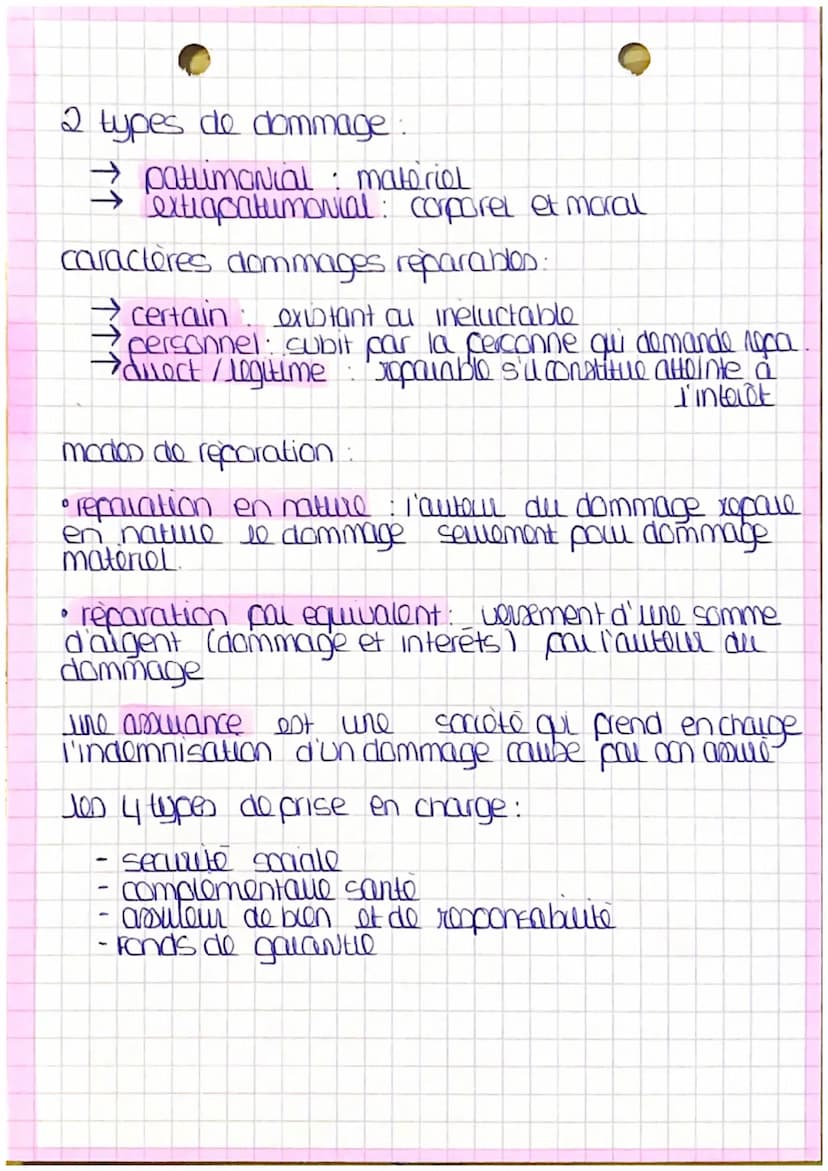 2 types de dommage :
→ patrimonial : matériel
→ extrapatrimonial : corporel et moral
caractères dommages réparables :
→ certain : existant ou inéluctable
→ personnel : subit par la personne qui demande répa.
→ direct / légitime : réparable s'il constitue atteinte à
l'intérêt
modes de réparation :
• réparation en nature : l'auteur du dommage répare
en nature le dommage seulement pour dommage
matériel.
• réparation par équivalent : versement d'une somme
d'argent (dommage et intérêts) par l'auteur du
dommage
une assurance est une société qui prend en charge
l'indemnisation d'un dommage causé par son assuré
les 4 types de prise en charge :
- sécurité sociale
- complémentaire santé
- assureur de bien et de responsabilité
- Fonds de garantie